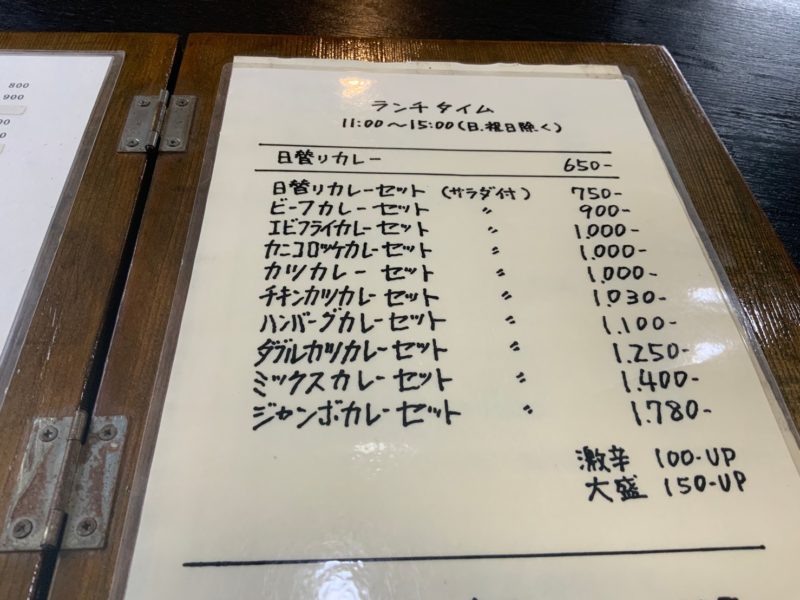 800
900
ランチタイム
11:00〜15:00(日.祝日除く)
日替りカレー 650-
日替りカレーセット (サラダ付) 750-
ビーフカレーセット 〃 900-
エビフライカレーセット 〃 1.000-
カニコロッケカレーセット 〃 1.000-
カツカレーセット 〃 1.000-
チキンカツカレーセット 〃 1.030-
ハンバーグカレーセット 〃 1.100-
ダブルカツカレーセット 〃 1.250-
ミックスカレーセット 〃 1.400-
ジャンボカレーセット 〃 1.780-
激辛 100-UP
大盛 150-UP